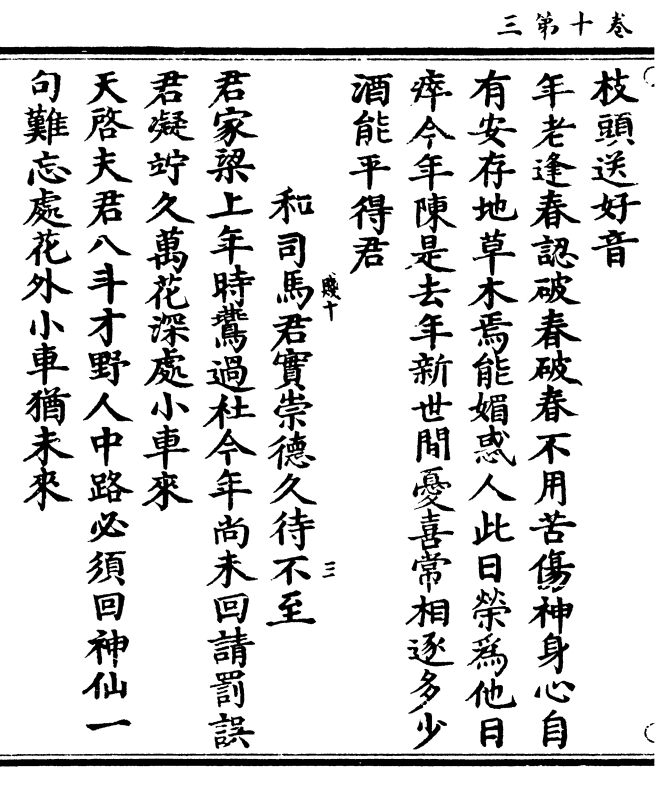 卷十第三
枝頭送好音
年老逢春認破春破春不用苦傷神身心自
有安存地草木焉能媚惑人此日榮爲他日
瘁今年陳是去年新世間憂喜常相逐多少
酒能平得君
十
三
和司馬君實崇德久待不至
君家梁上年時鷰過社今年尚未回請罰誤
君凝竚久萬花深處小車來
天啓夫君八斗才野人中路必須回神仙一
句難忘處花外小車猶未來